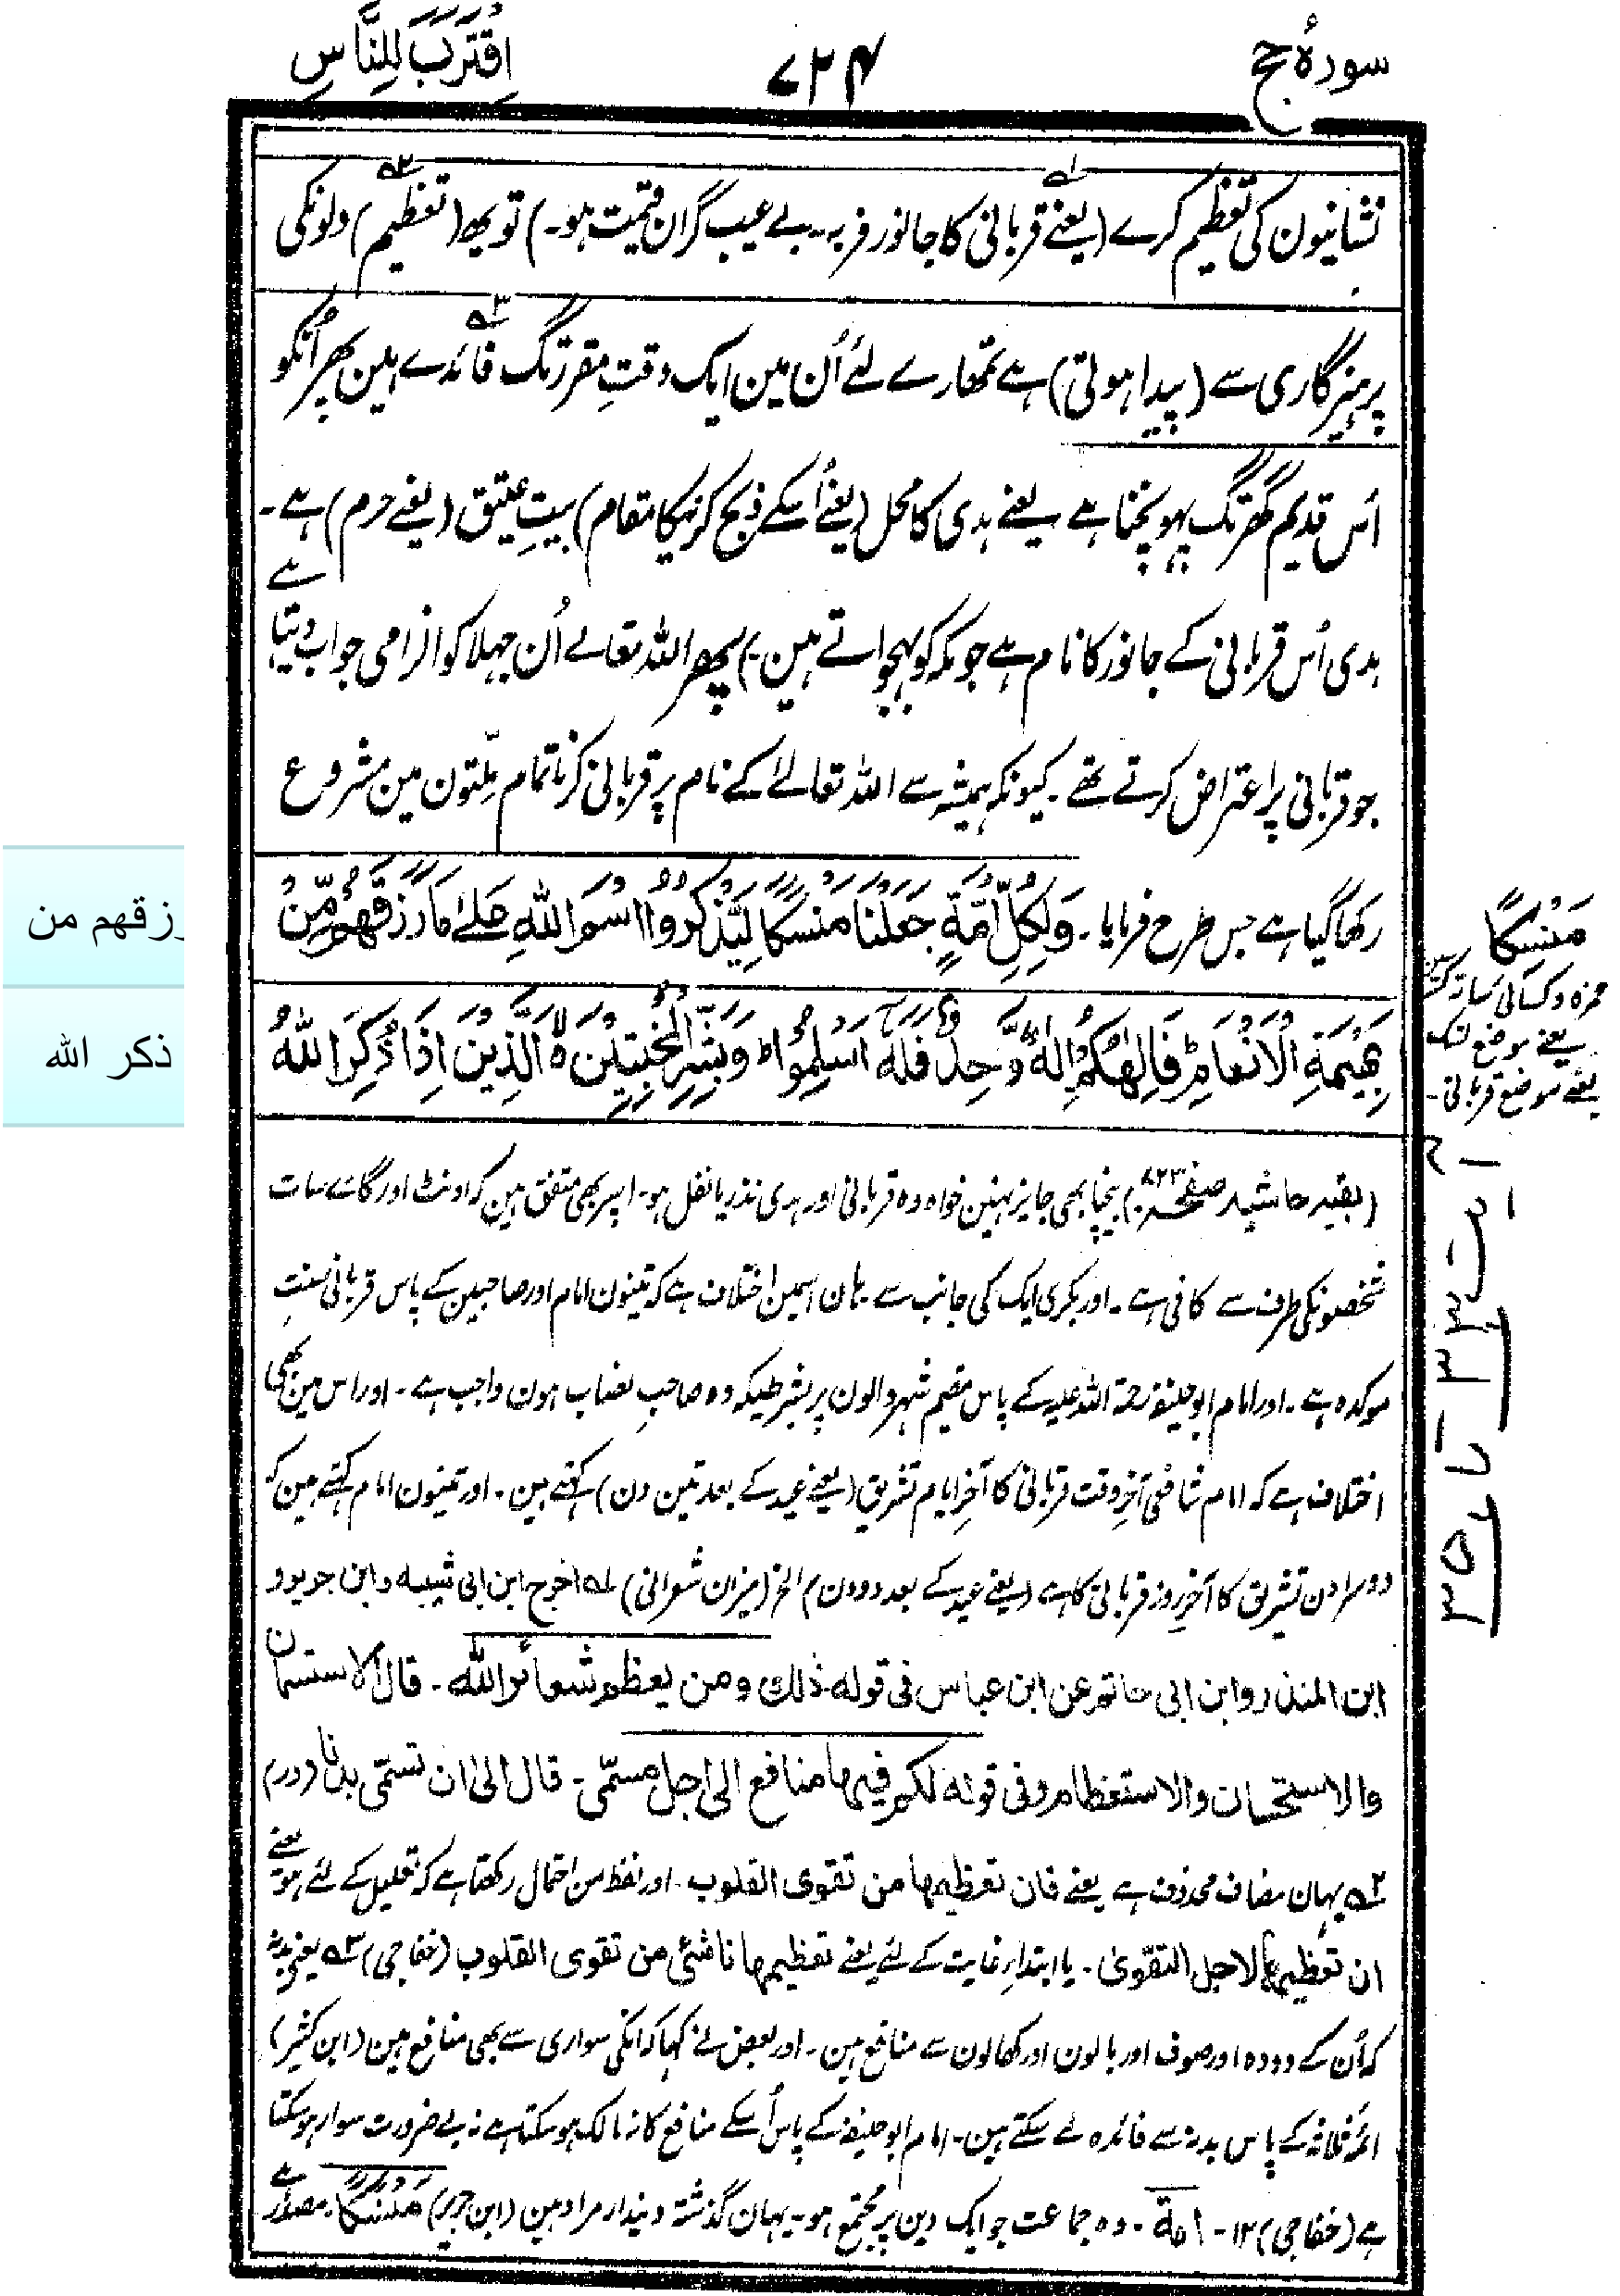 سورۂ حج
۷۲۴
اِقْتَرَبَ لِلنَّاسِ
نشانیون کی تعظیم کرے (یعنے قربانی کا جانور فربہ۔ بے عیب گران قیمت ہو۔) تو یھ (تعظیم) دلونکی
پرہیزگاری سے (پیدا ہوتی) ہے تمھارے لئے اُن مین ایک وقتِ مقرر تک فائدے ہین پھر اُنکو
اُس قدیم گھر تک پہونچنا ہے یعنے ہدی کا محل (یعنے اُسکے ذبح کرنیکا مقام) بیتِ عتیق (یعنے حرم) ہے۔
ہدی اُس قربانی کے جانور کا نام ہے جو مکہ کو بہجواتے ہین۔) پھر اللہ تعالے اُن جہلا کو الزامی جواب دیتا ہے
جو قربانی پر اعتراض کرتے تھے۔ کیونکہ ہمیشہ سے اللہ تعالےٰ کے نام پر قربانی کرنا تمام مِلّتون مین مشروع
رکھا گیا ہے جس طرح فرمایا۔ وَلِكُلِّ اُمَّةٍ جَعَلْنَا مَنْسَكًا لِّيَذْكُرُوا اسْمَ اللهِ عَلٰے مَا رَزَقَهُمْ مِّنْۢ
بَهِيْمَةِ الْاَنْعَامِ ؕ فَاِلٰهُكُمْ اِلٰهٌ وَّاحِدٌ فَلَهٗۤ اَسْلِمُوْا ؕ وَبَشِّرِ الْمُخْبِتِيْنَ ۙ الَّذِيْنَ اِذَا ذُكِرَ اللهُ
رزقهم من
ذكر الله
مَنْسِكًا
حمزہ و کسائی بسین کسرہ
یعنے موضع نسک
یعنے موضع قربانی۔
آیت ۳۳ تا ۳۵
(بقیہ حاشیہ صفحہ ۸۲۳) بیچنا بھی جایز نہین خواہ وہ قربانی اور ہدی نذر یا نفل ہو۔ اسپر بھی متفق ہین کہ اونٹ اور گائے سات
شخصونکی طرف سے کافی ہے۔ اور بکری ایک کی جانب سے ہان اسمین اختلاف ہے کہ تینون امام اور صاحبین کے پاس قربانی سنتِ
موکدہ ہے۔ اور امام ابو حنیفہ رحمۃ اللہ علیہ کے پاس مقیم شہر والون پر بشرطیکہ وہ صاحبِ نصاب ہون واجب ہے۔ اور اس مین بھی
اختلاف ہے کہ امام شافعی آخر وقت قربانی کا آخر ایام تشریق (یعنے عید کے بعد تین دن) کہتے ہین۔ اور تینون امام کہتے ہین کہ
دوسرا دن تشریق کا آخر روز قربانی کا ہے (یعنے عید کے بعد دو دن) الخ (میزان شعرانی) ۱؎ اخرج ابن ابی شیبہ و ابن جریر و
ابن المنذر و ابن ابی حاتم عن ابن عباس فی قوله ذلك ومن يعظم شعائر الله۔ قال الاستسمان
والاستحسان والاستعظام وفی قوله لكم فيها منافع الى اجل مسمّى۔ قال الى ان تسمّى بدنا (در)
۲؎ یہان مضاف محذوف ہے یعنے فان تعظیمها من تقوی القلوب۔ اور لفظ من احتمال رکھتا ہے کہ تعلیل کے لئے ہو یعنے
ان تعظیمها لاجل التقوىٰ۔ یا ابتداءِ غایت کے لئے یعنے تعظیمها ناشئ من تقوی القلوب (خفاجی) ۳؎ یعنے بدنہ
کہ اُن کے دودہ اور صوف اور بالون اور کھالون سے منافع ہین۔ اور بعض نے کہا کہ انکی سواری سے بھی منافع ہین (ابن کثیر)
ائمہ ثلاثہ کے پاس بدنہ سے فائدہ لے سکتے ہین۔ امام ابو حنیفہ کے پاس اُسکے منافع کا نہ مالک ہوسکتا ہے نہ بے ضرورت سوار ہوسکتا
ہے (خفاجی) ۱۲۔ امة۔ وہ جماعت جو ایک دین پر مجتمع ہو۔ یہان گذشتہ دیندار مراد ہین (ابن جریر) مَنْسَكًا۔ مصدر ہے